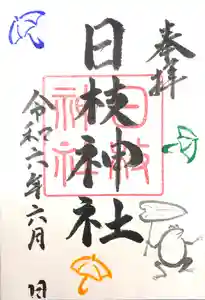 奉拝
日枝神社
日枝
神社
令和六年六月 日